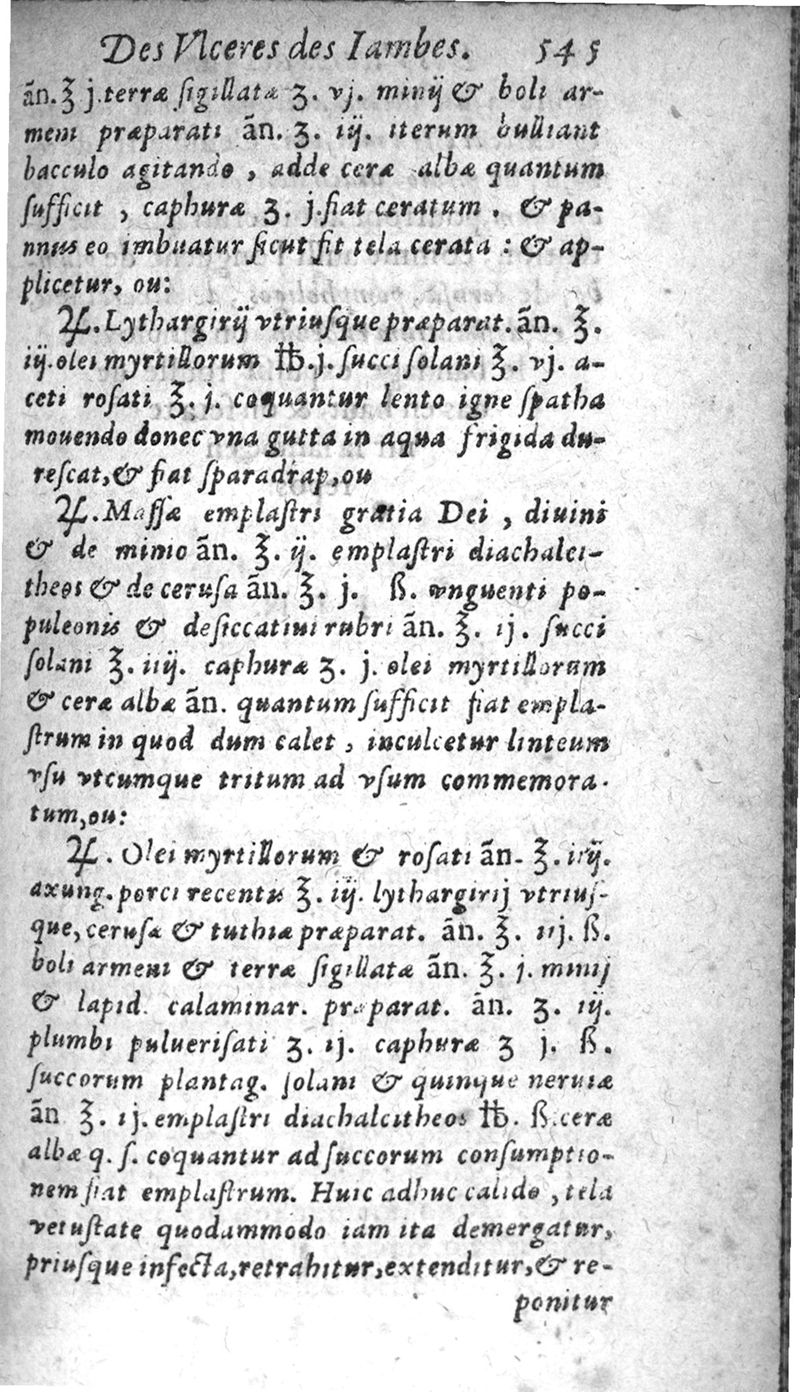 Des Vlceres des Iambes. 545
ãn. ℥ j. terræ ſigillatæ ʒ. vj. minij & boli ar-
meni præparati ãn. ʒ. iij. iterum bulliant
bacculo agitando, adde ceræ albæ quantum
ſufficit, caphuræ ʒ. j. fiat ceratum. & pa-
nnus eo imbuatur ſicut fit tela cerata : & ap-
plicetur, ou:
♃. Lythargirij vtriuſque præparat. ãn. ℥.
iij. olei myrtillorum ℔. j. ſucci ſolani ℥. vj. a-
ceti roſati ℥. j. coquantur lento igne ſpatha
mouendo donec vna gutta in aqua frigida du-
reſcat, & fiat ſparadrap, ou
♃. Maſſæ emplaſtri gratia Dei, diuini
& de minio ãn. ℥. ij. emplaſtri diachalci-
theos & de ceruſa ãn. ℥. j. ß. vnguenti po-
puleonis & deſiccatiui rubri ãn. ℥. ij. ſucci
ſolani ℥. iiij. caphuræ ʒ. j. olei myrtillorum
& ceræ albæ ãn. quantum ſufficit fiat empla-
ſtrum in quod dum calet, inculcetur linteum
vſu vtcumque tritum ad vſum commemora-
tum, ou:
♃. Olei myrtillorum & roſati ãn. ℥. iiij.
axung. porci recentis ℥. iij. lythargirij vtriuſ-
que, ceruſæ & tuthiæ præparat. ãn. ℥. iij. ß.
boli armeni & terræ ſigillatæ ãn. ℥. j. minij
& lapid. calaminar. præparat. ãn. ʒ. iij.
plumbi pulueriſati ʒ. ij. caphuræ ʒ j. ß.
ſuccorum plantag. ſolani & quinque neruiæ
ãn ℥. ij. emplaſtri diachalcitheos ℔. ß. ceræ
albæ q. ſ. coquantur ad ſuccorum conſumptio-
nem fiat emplaſtrum. Huic adhuc calido, tela
vetuſtate quodammodo iam ita demergatur,
priuſque infecta, retrahitur, extenditur, & re-
ponitur